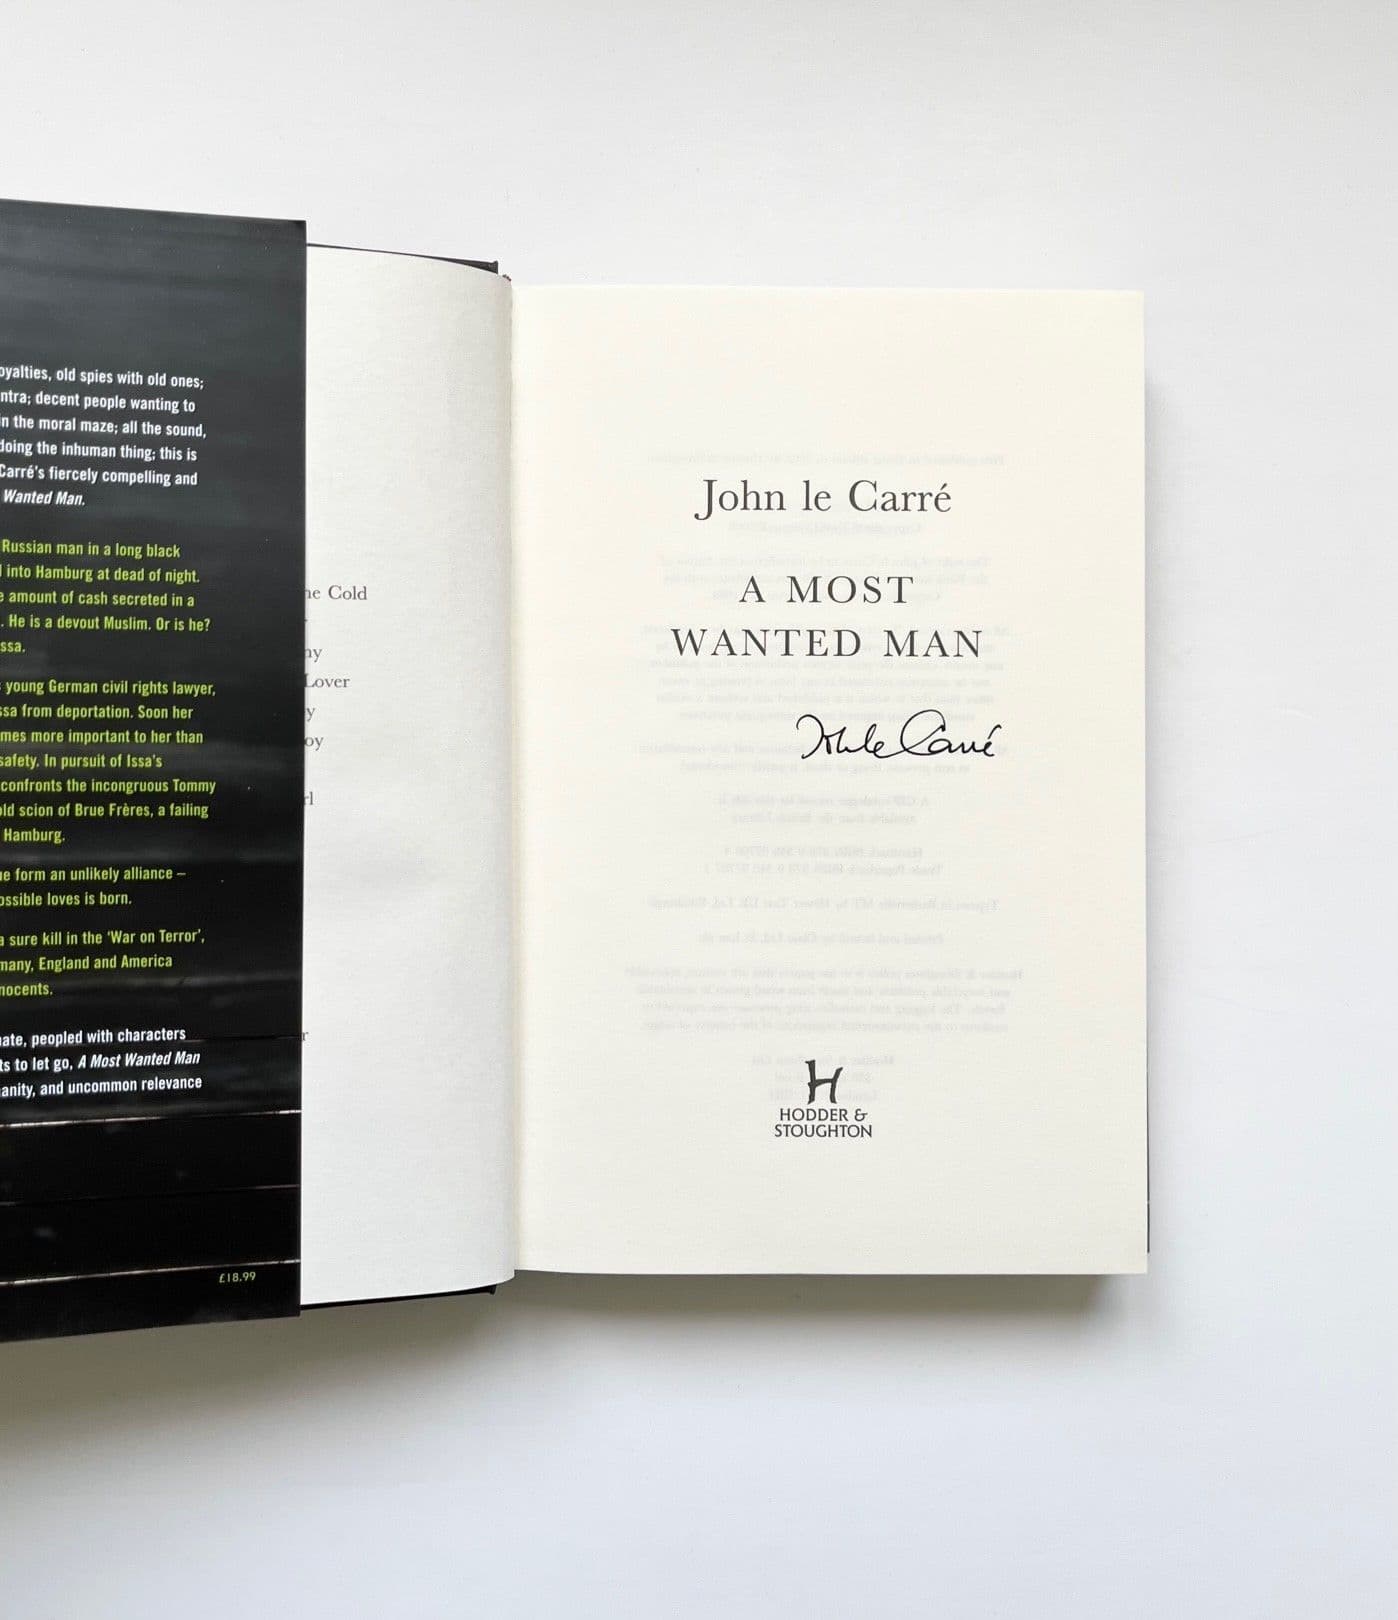 oyalties, old spies with old ones;
ntra; decent people wanting to
n the moral maze; all the sound,
doing the inhuman thing; this is
Carré's fiercely compelling and
Wanted Man.
Russian man in a long black
into Hamburg at dead of night.
amount of cash secreted in a
. He is a devout Muslim. Or is he?
ssa.
young German civil rights lawyer,
ssa from deportation. Soon her
mes more important to her than
safety. In pursuit of Issa's
confronts the incongruous Tommy
old scion of Brue Frères, a failing
Hamburg.
ue form an unlikely alliance –
ossible loves is born.
a sure kill in the 'War on Terror',
many, England and America
nocents.
nate, peopled with characters
ts to let go, A Most Wanted Man
anity, and uncommon relevance
£18.99
he Cold
ny
Lover
y
oy
rl
r
John le Carré
A MOST
WANTED MAN
John le Carré
HODDER &
STOUGHTON